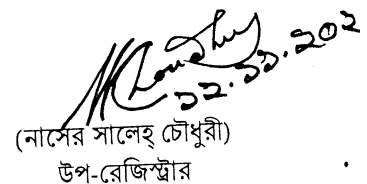 ১২.১১.২০২
(নাসের সালেহ্ চৌধুরী)
উপ-রেজিস্ট্রার